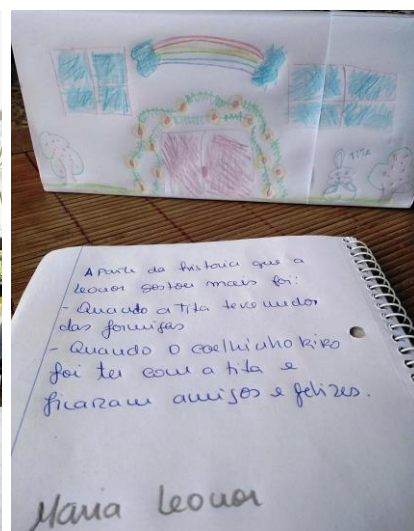 Tita
A parte da história que a
Leonor gostou mais foi:
- Quando a Tita teve medo
das formigas
- Quando o coelhinho kiko
foi ter com a tita e
ficaram amigos e felizes.
Maria Leonor